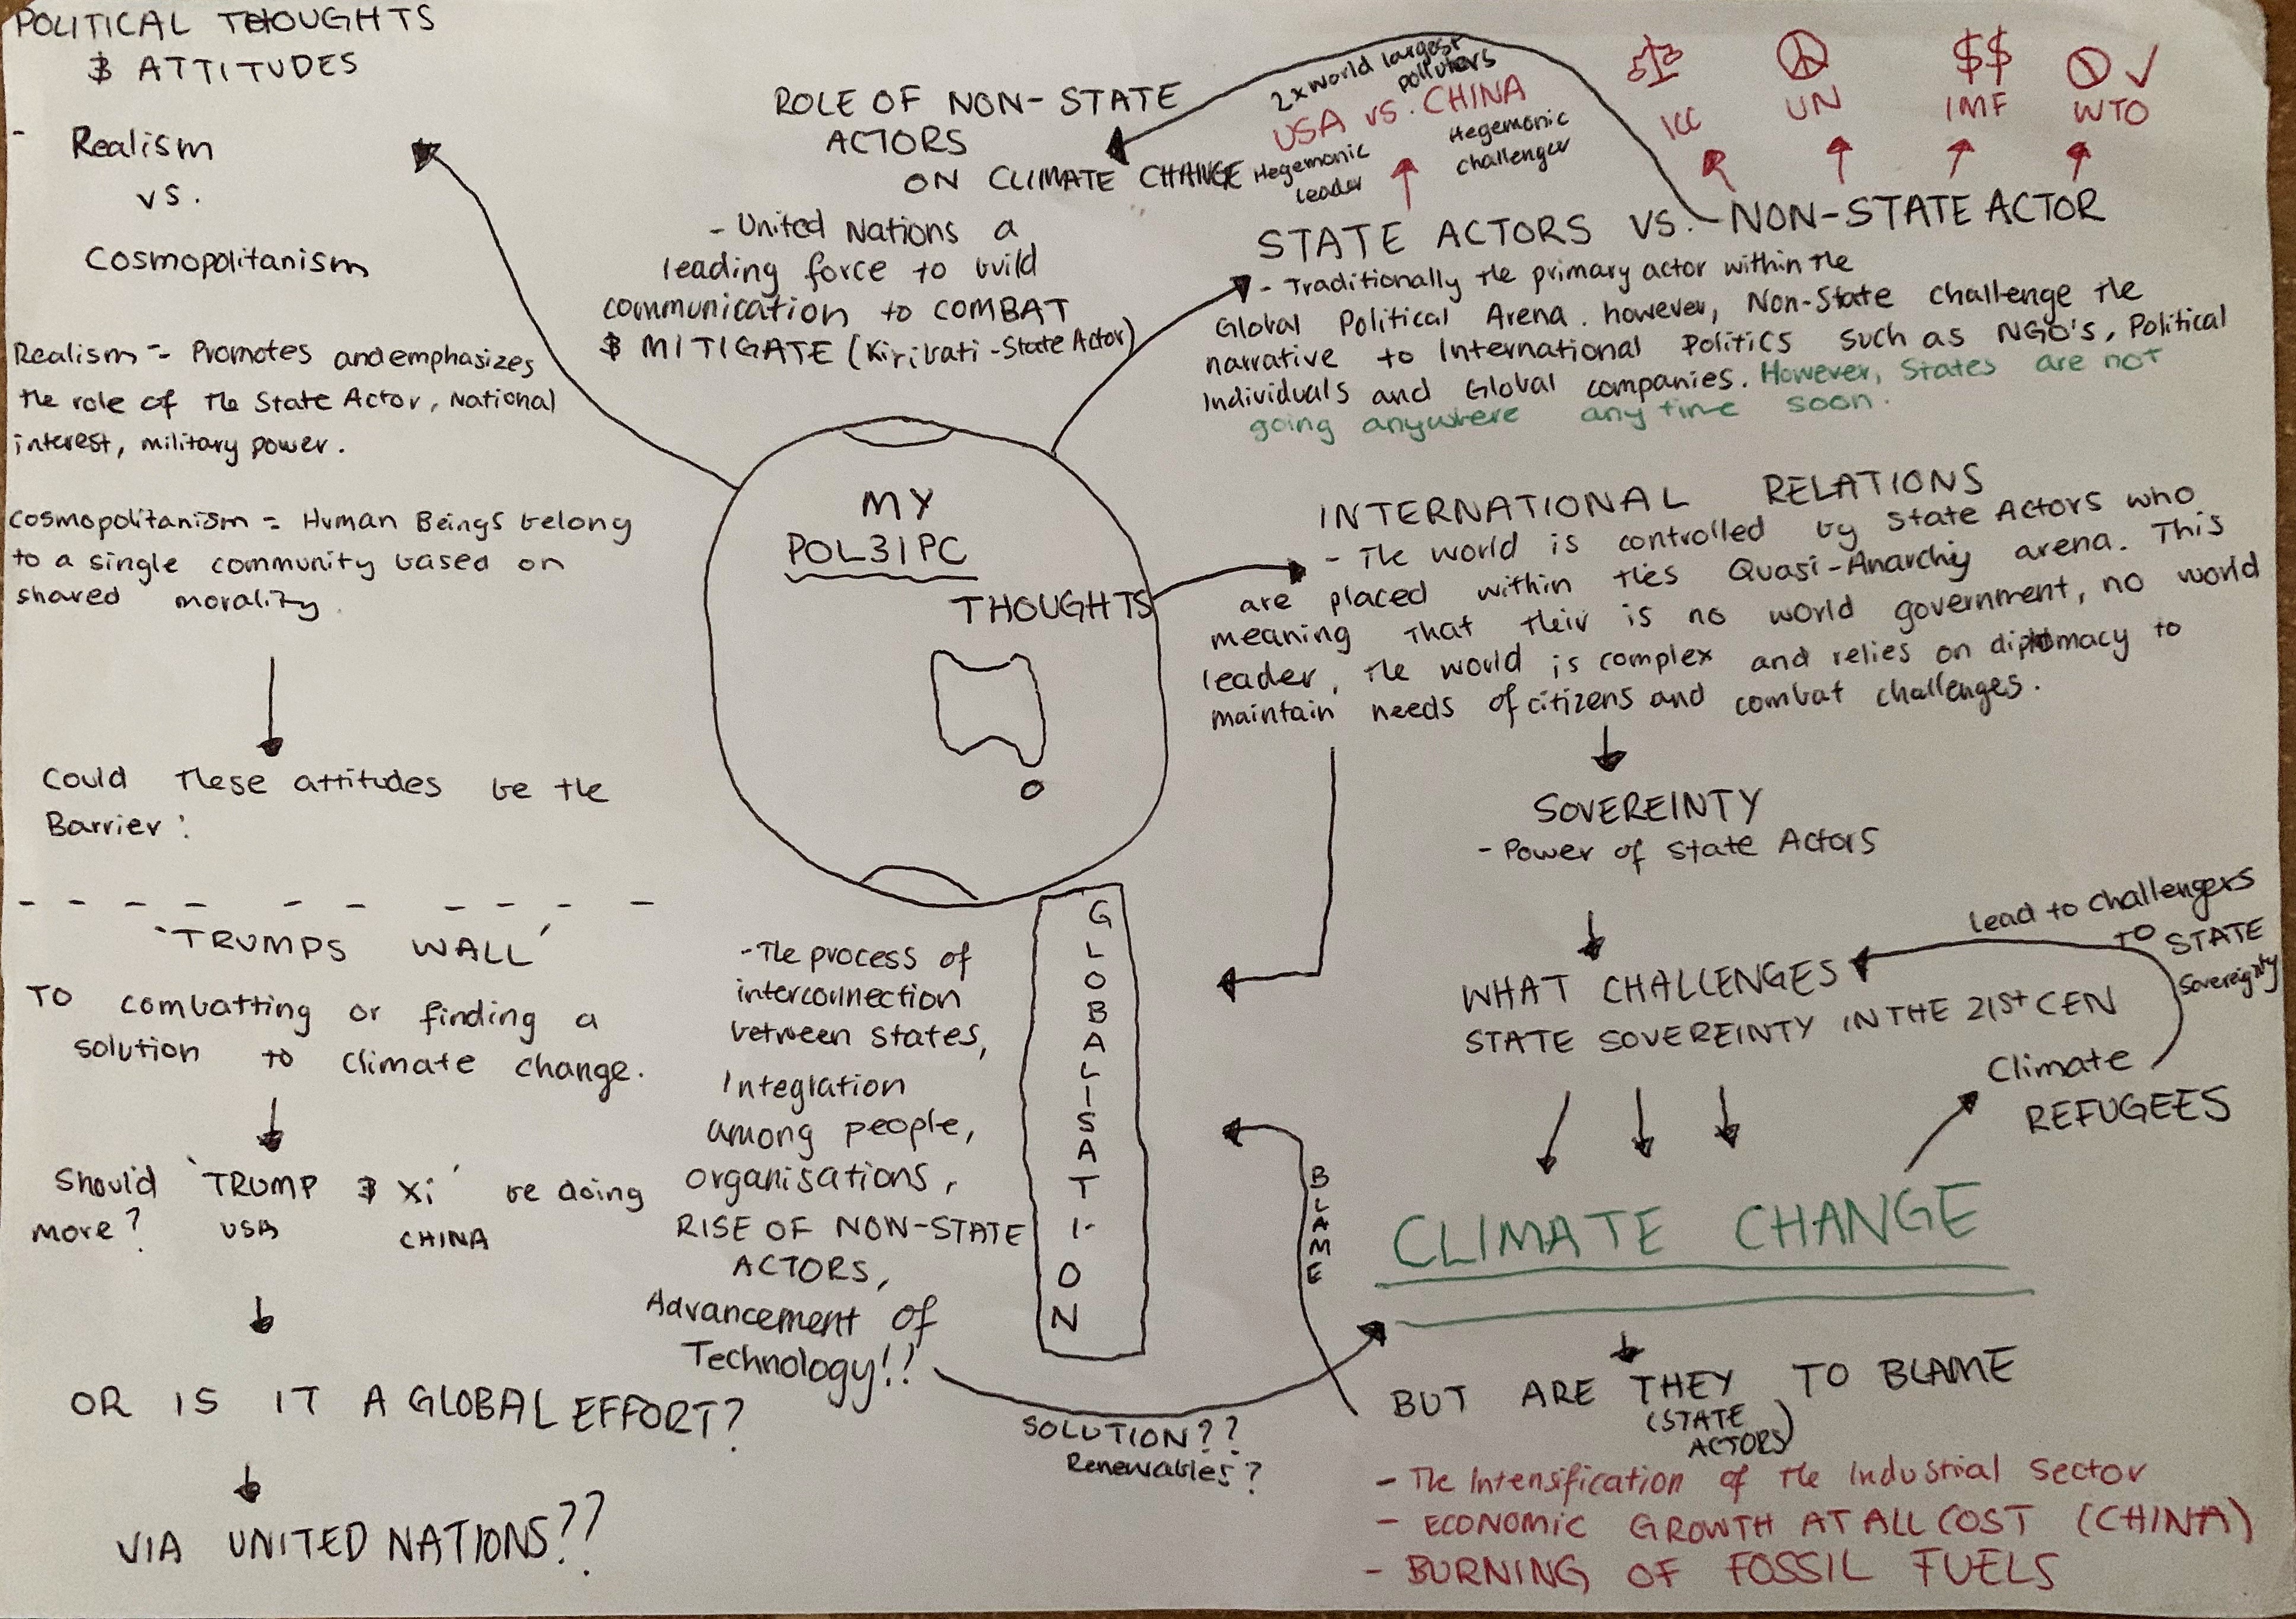 POLITICAL THOUGHTS
& ATTITUDES
- Realism
vs.
Cosmopolitanism
Realism - Promotes and emphasizes
the role of the State Actor, National
interest, military power.
Cosmopolitanism = Human Beings belong
to a single community based on
shared morality.
Could these attitudes be the
Barrier:
'TRUMPS WALL'
TO combatting or finding a
solution to climate change.
Should 'TRUMP & Xi' be doing
more? USA CHINA
OR IS IT A GLOBAL EFFORT?
VIA UNITED NATIONS??
ROLE OF NON-STATE
ACTORS
ON CLIMATE CHANGE
- United Nations a
leading force to build
communication to COMBAT
& MITIGATE (Kiribati - State Actor)
MY
POL31PC
THOUGHTS
GLOBALISATION
- The process of
interconnection
between states,
Integration
among people,
organisations,
RISE OF NON-STATE
ACTORS,
Advancement of
Technology!!
SOLUTION??
Renewables?
2x world largest
polluters
USA vs. CHINA
Hegemonic
leader
Hegemonic
challenger
$$
ICC UN IMF WTO
STATE ACTORS VS. NON-STATE ACTOR
- Traditionally the primary actor within the
Global Political Arena. however, Non-State challenge the
narrative to International Politics such as NGO's, Political
Individuals and Global companies. However, States are not
going anywhere any time soon.
INTERNATIONAL RELATIONS
- The world is controlled by State Actors who
are placed within ths Quasi-Anarchy arena. This
meaning that their is no world government, no world
leader, the world is complex and relies on diplomacy to
maintain needs of citizens and combat challenges.
SOVEREINTY
- Power of State Actors
WHAT CHALLENGES
STATE SOVEREINTY IN THE 21st CEN
lead to challengers
TO STATE
Sovereignty
Climate
REFUGEES
CLIMATE CHANGE
BLAME
BUT ARE THEY TO BLAME
(STATE
ACTORS)
- The Intensification of the Industrial sector
- ECONOMIC GROWTH AT ALL COST (CHINA)
- BURNING OF FOSSIL FUELS